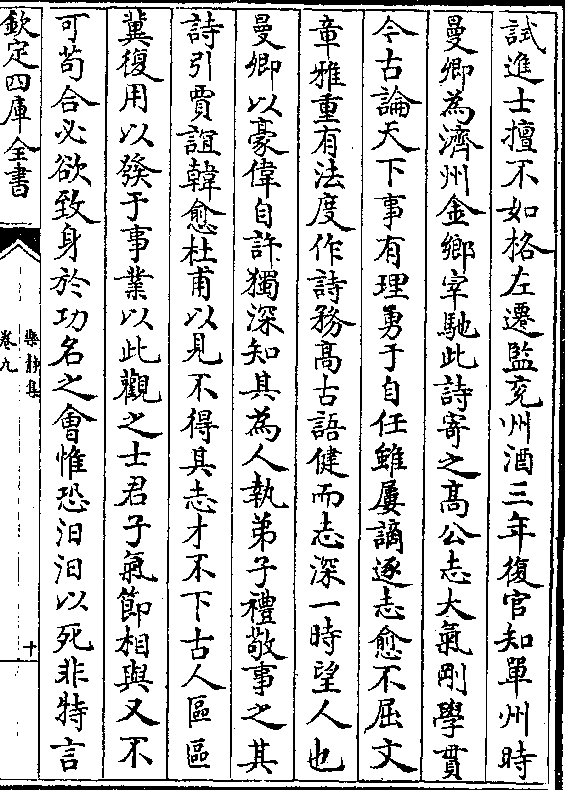 試進士擅不如格左遷監兖州酒三年復官知單州時
曼卿為濟州金鄉宰馳此詩寄之髙公志大氣剛學貫
今古論天下事有理勇于自任雖屢謫逐志愈不屈文
章雅重有法度作詩務髙古語健而志深一時望人也
曼卿以豪偉自許獨深知其為人執弟子禮敬事之其
詩引賈誼韓愈杜甫以見不得其志才不下古人區區
冀復用以發于事業以此觀之士君子氣節相與又不
可苟合必欲致身於功名之會惟恐汨汨以死非特言
欽定四庫全書
樂静集
卷九
十